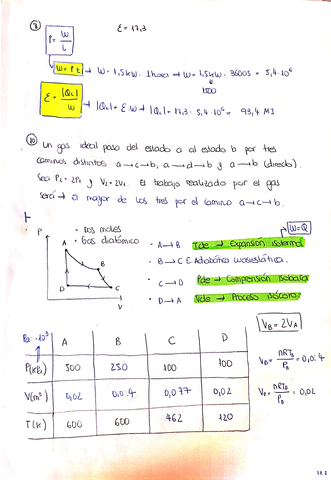 ε = 17,3
P = W/t
W = P·t → W = 1,5kW · 1hora → W = 1,5kW · 3600S = 5,4·10⁶
1500
ε = |Qc|/W → |Qc| = ε·W → |Qc| = 17,3 · 5,4·10⁶ = 93,4 MJ
10 Un gas ideal pasa del estado a al estado b por tres
caminos distintos a→c→b, a→d→b y a→b (directo).
Sea P = 2P y V₂ = 2V₁. El trabajo realizado por el gas
será → el mayor de los tres por el camino a→c→b.
- Dos moles
- Gas diatómico
W=Q
P
A
B
D
C
V
· A→B Tcte → Expansión isoterma
· B→C E. Adiabática cuasiestática.
· C→D Pcte → Compresión isobara
· D→A Vcte → Proceso isócoro
V_B = 2V_A
Pa·10³
A B C D
P(KPa) 500 250 100 100
V(m³) 0,02 0,04 0,077 0,02
T(K) 600 600 462 120
= 0,04
= 0,02